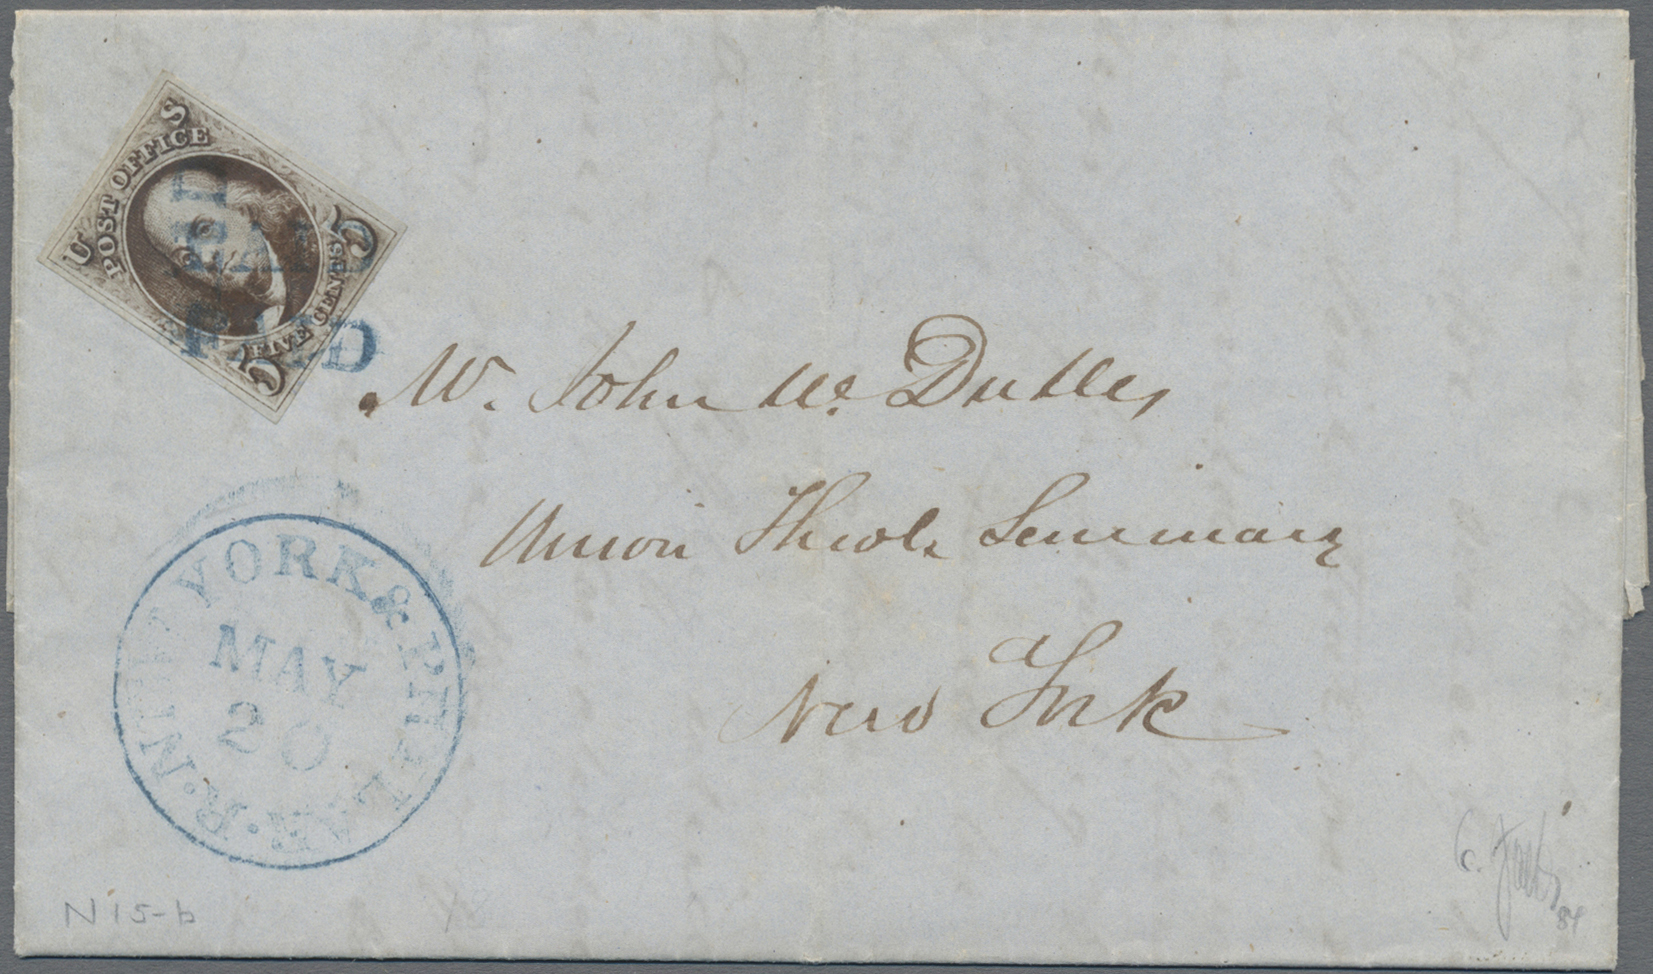 U S
POST OFFICE
FIVE CENTS
5 5
PAID
PAID
PAID
Mr. John W. Dulles,
Union Theol. Seminary
New York
NEW YORK & PHILA. R. R.
MAY
20
N 15-b
84